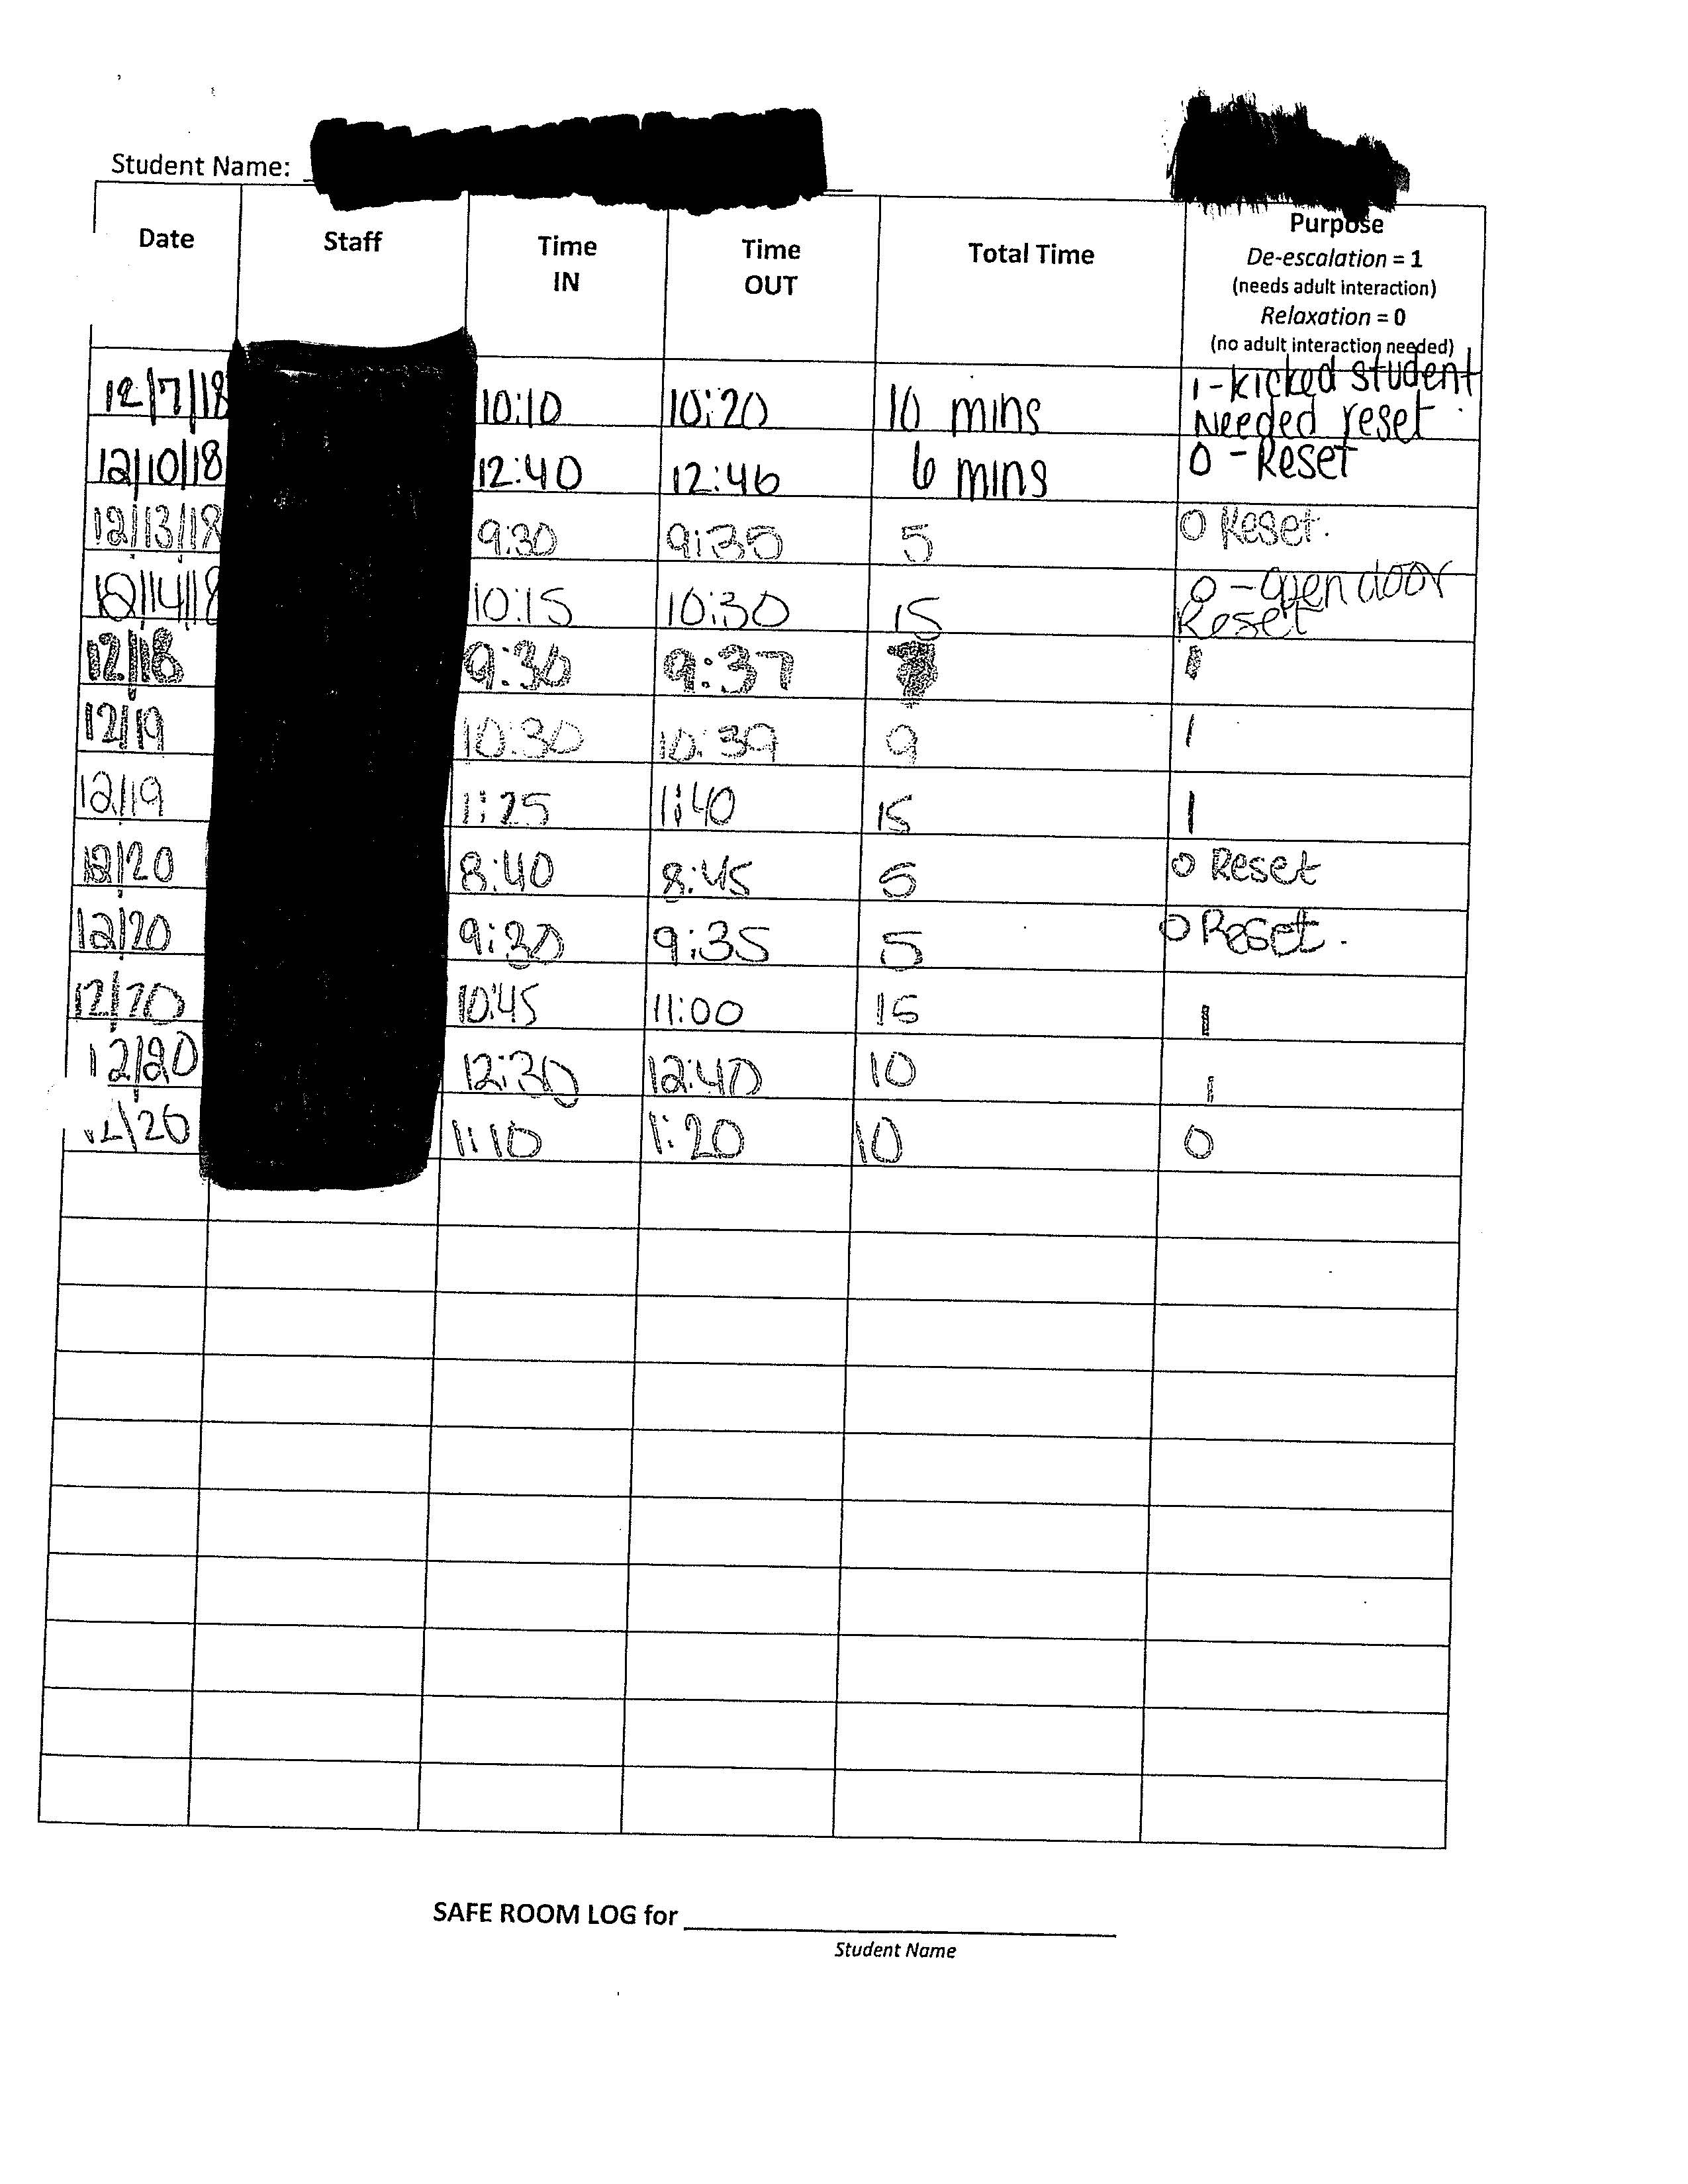 Student Name:
Date Staff Time IN Time OUT Total Time Purpose
De-escalation = 1
(needs adult interaction)
Relaxation = 0
(no adult interaction needed)
12/7/18 10:10 10:20 10 mins 1-kicked student
Needed reset
12/10/18 12:40 12:46 6 mins 0 - Reset
12/13/18 9:30 9:35 5 0 Reset.
12/14/18 10:15 10:30 15 0 - Open door
Reset
12/18 9:30 9:37 7 1
12/19 10:30 10:39 9 1
12/19 1:25 1:40 15 1
12/20 8:40 8:45 5 0 Reset
12/20 9:30 9:35 5 0 Reset.
12/20 10:45 11:00 15 1
12/20 12:30 12:40 10 1
12/20 1:10 1:20 10 0
SAFE ROOM LOG for
Student Name